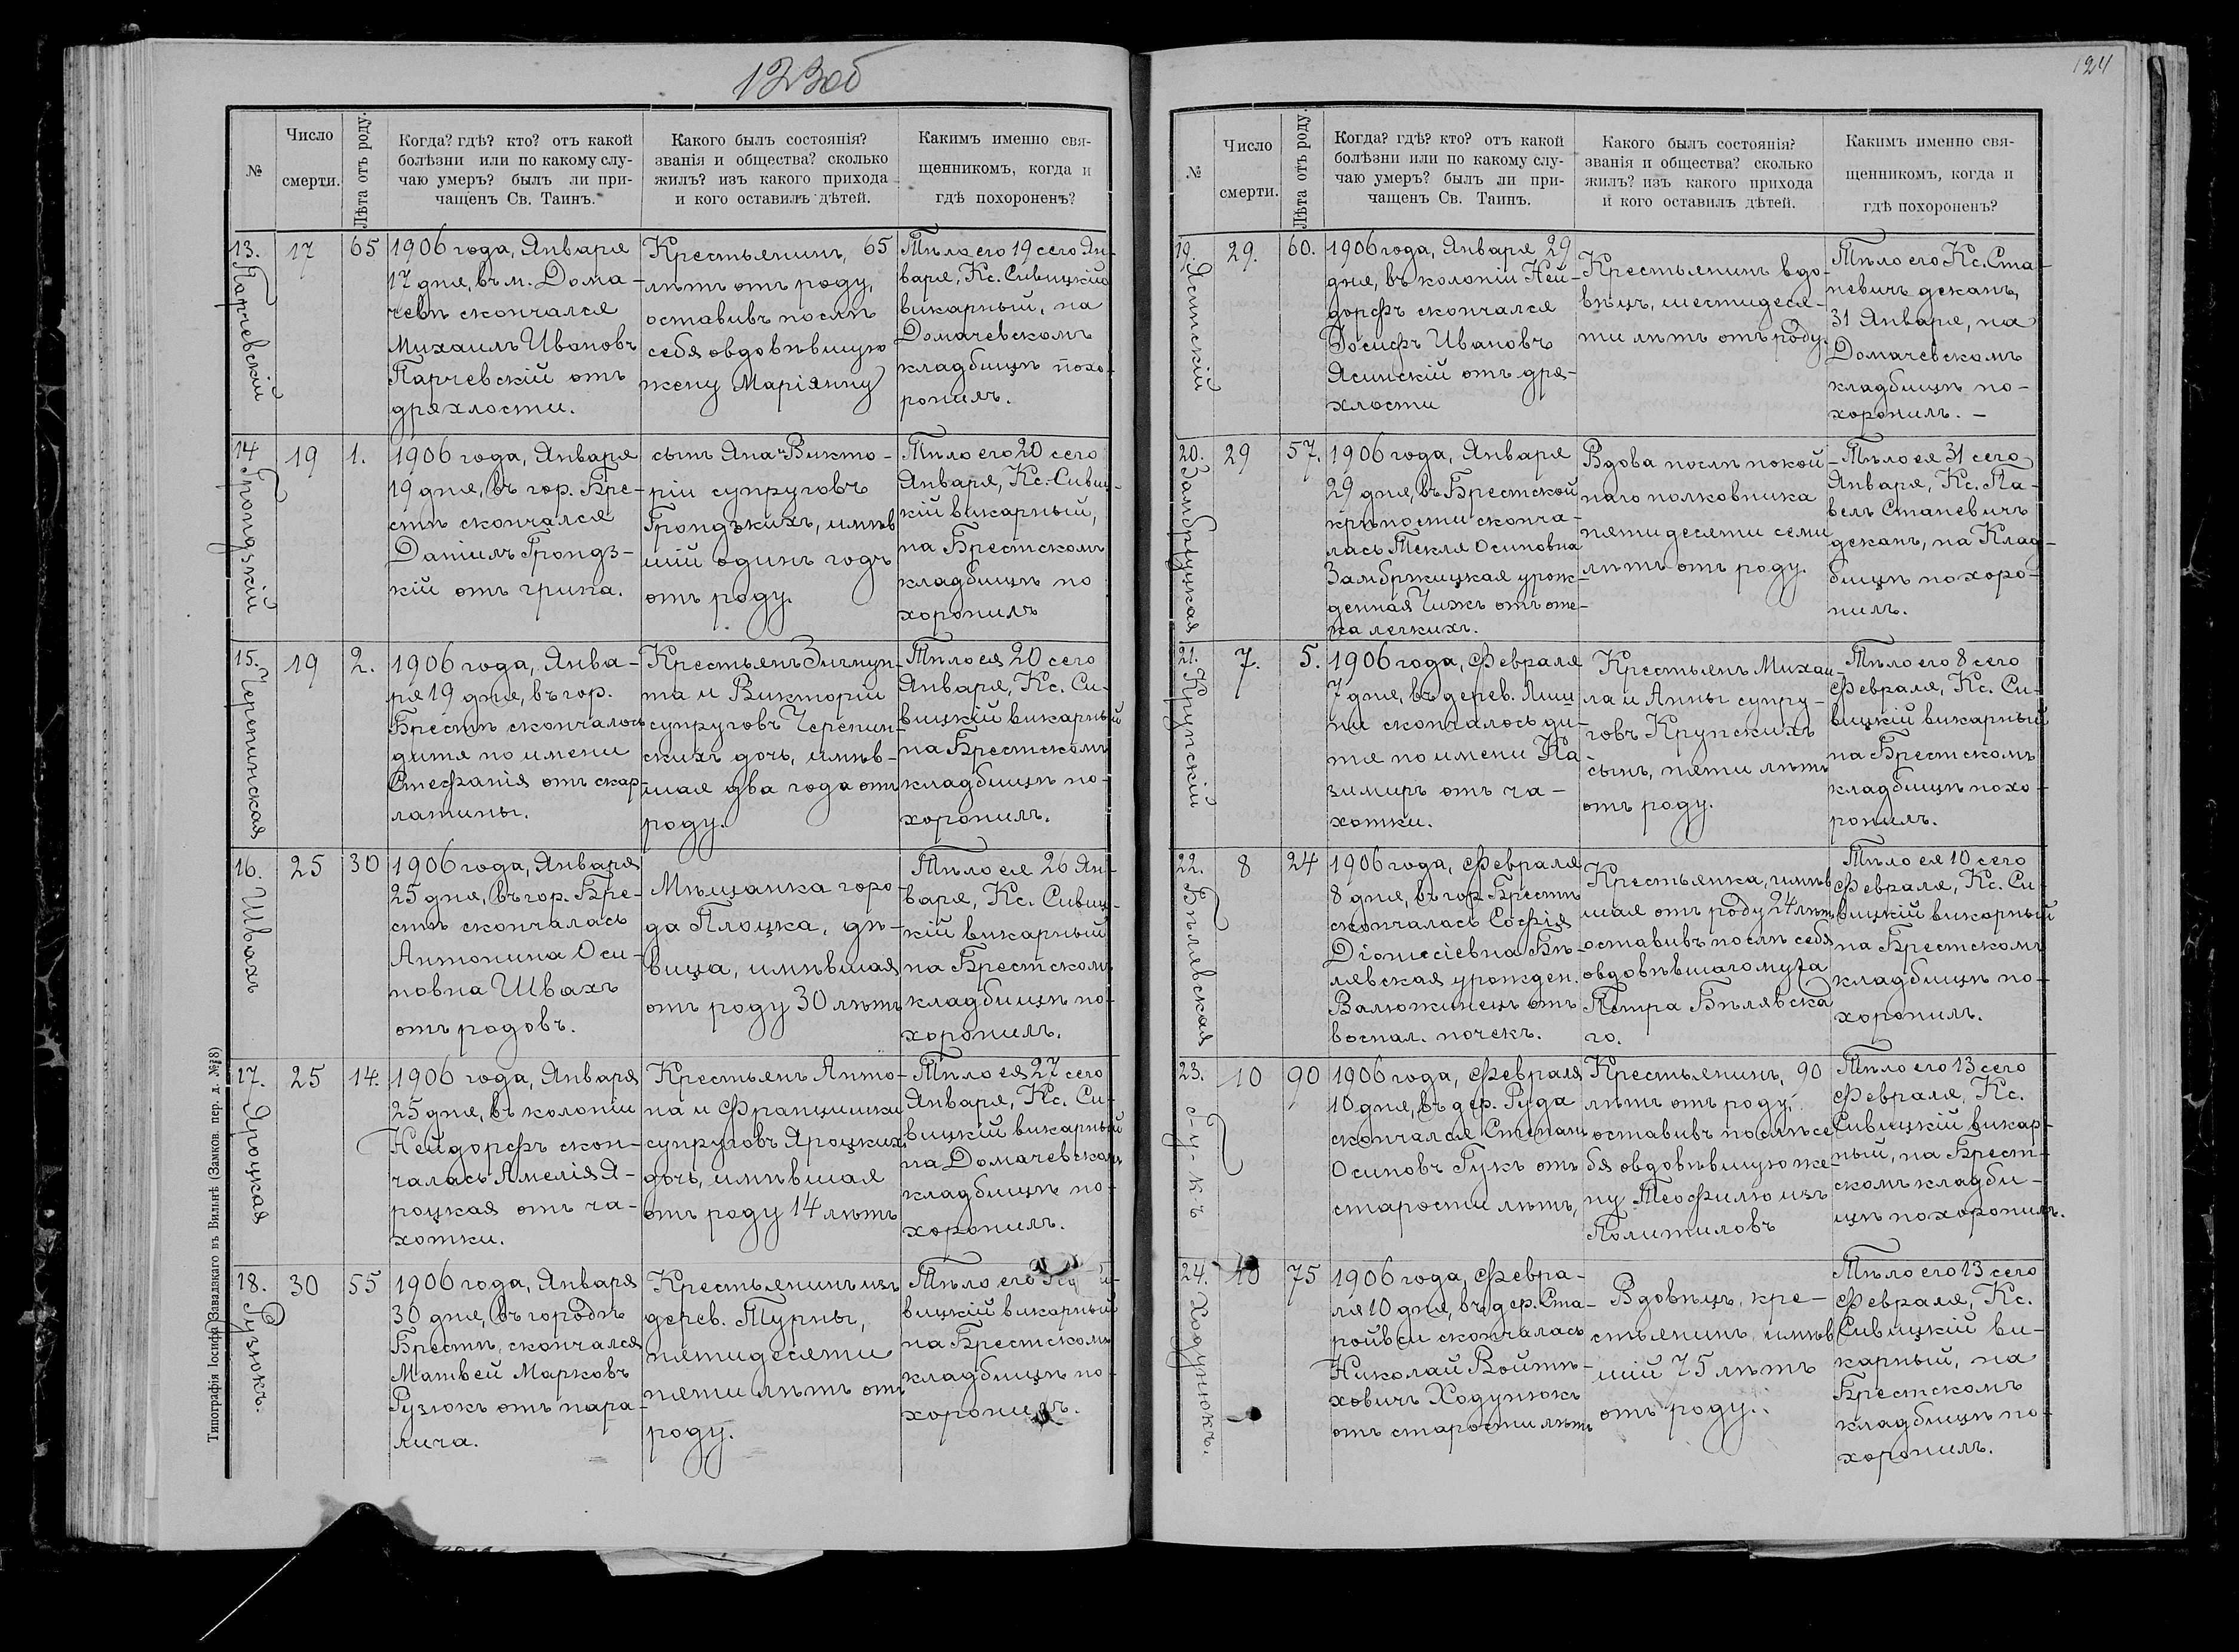 123об
№
Число
смерти.
Лѣта отъ роду.
Когда? гдѣ? кто? отъ какой
болѣзни или по какому слу-
чаю умеръ? былъ ли при-
чащенъ Св. Таинъ.
Какого былъ состоянія?
званія и общества? сколько
жилъ? изъ какого прихода
и кого оставилъ дѣтей.
Какимъ именно свя-
щенникомъ, когда и
гдѣ похороненъ?
13.
Парчевскій
17
65
1906 года, Января
17 дня, въ м. Дома-
чевѣ скончался
Михаилъ Ивановъ
Парчевскій отъ
дряхлости.
Крестьянинъ, 65
лѣтъ отъ роду,
оставивъ послѣ
себя овдовѣвшую
жену Маріянну
Тѣло его 19 сего Ян-
варя, Кс. Сивицкій
викарный, на
Домачевскомъ
кладбищѣ похо-
ронилъ.
14
Грондзкій
19
1.
1906 года, Января
19 дня, въ гор. Бре-
стѣ скончался
Даніилъ Грондз-
кій отъ грипа.
сынъ Яна и Викто-
ріи супруговъ
Грондзкихъ, имѣв
шій одинъ годъ
отъ роду.
Тѣло его 20 сего
Января, Кс. Сивиц-
кій викарный,
на Брестскомъ
кладбищѣ по
хоронилъ
15.
Черепинская
19
2.
1906 года, Янва-
ря 19 дня, въ гор.
Брестѣ скончалось
дитя по имени
Стефанія отъ скар-
латины.
Крестьянъ Зигмун-
та и Викторіи
супруговъ Черепин-
скихъ дочь, имѣв-
шая два года отъ
роду.
Тѣло ея 20 сего
Января, Кс. Си-
вицкій викарный
на Брестскомъ
кладбищѣ по-
хоронилъ.
16.
Швахъ
25
30
1906 года, Января
25 дня, въ гор. Бре-
стѣ скончалась
Антонина Оси-
повна Швахъ
отъ родовъ.
Мѣщанка горо-
да Плоцка, дѣ-
вица, имѣвшая
отъ роду 30 лѣтъ
Тѣло ея 26 Ян-
варя, Кс. Сивиц-
кій викарный
на Брестскомъ
кладбищѣ по-
хоронилъ.
17.
Яроцкая
25
14.
1906 года, Января
25 дня, въ колоніи
Нейдорфъ скон-
чалась Амелія Я-
роцкая отъ ча-
хотки.
Крестьянъ Анто-
на и Францишки
супруговъ Яроцкихъ
дочь, имѣвшая
отъ роду 14 лѣтъ
Тѣло ея 27 сего
Января, Кс. Си-
вицкій викарный
на Домачевскомъ
кладбищѣ по-
хоронилъ.
18.
Рузюкъ.
30
55
1906 года, Января
30 дня, въ городѣ
Брестѣ, скончался
Матвей Марковъ
Рузюкъ отъ пара-
лича.
Крестьянинъ изъ
дерев. Турны,
пятидесяти
пяти лѣтъ отъ
роду.
Тѣло его
вицкій викарный
на Брестскомъ
кладбищѣ по-
хоронилъ.
Типографія Іосифа Завадзкаго въ Вильнѣ (Замков. пер. д. № 8)
124
№
Число
смерти.
Лѣта отъ роду.
Когда? гдѣ? кто? отъ какой
болѣзни или по какому слу-
чаю умеръ? былъ ли при-
чащенъ Св. Таинъ.
Какого былъ состоянія?
званія и общества? сколько
жилъ? изъ какого прихода
и кого оставилъ дѣтей.
Какимъ именно свя-
щенникомъ, когда и
гдѣ похороненъ?
19.
Ясинскій
29.
60.
1906 года, Января 29
дня, въ колоніи Ней-
дорфъ скончался
Іосифъ Ивановъ
Ясинскій отъ дря-
хлости
Крестьянинъ вдо-
вецъ, шестидеся-
ти лѣтъ отъ роду.
Тѣло его Кс. Ста-
невичъ деканъ,
31 Января, на
Домачевскомъ
кладбищѣ по-
хоронилъ. —
20.
Замбржицкая
29
57.
1906 года, Января
29 дня, въ Брестской
крѣпости сконча-
лась Текля Осиповна
Замбржицкая урож-
денная Чижъ отъ оте-
ка легкихъ.
Вдова послѣ покой-
наго полковника
пятидесяти семи
лѣтъ отъ роду.
Тѣло ея 31 сего
Января, Кс. Па-
велъ Станевичъ
деканъ, на Клад-
бищѣ похоро-
нилъ.
21.
Крупскій
7.
5.
1906 года, Февраля
7 дня, въ дерев. Лищ
ни скончалось ди-
тя по имени Ка
зимиръ отъ ча-
хотки.
Крестьянъ Михаи-
ла и Анны супру-
говъ Крупскихъ
сынъ, пяти лѣтъ
отъ роду.
Тѣло его 8 сего
Февраля, Кс. Си-
вицкій викарный
на Брестскомъ
кладбищѣ похо-
ронилъ.
22.
Бѣлявская
8
24
1906 года, Февраля
8 дня, въ гор. Брестѣ
скончалась Софія
Діонисіевна Бѣ-
лявская урожден.
Валюжинецъ отъ
воспал. почекъ.
Крестьянка, имѣв
шая отъ роду 24 лѣтъ
оставивъ послѣ себя
овдовѣвшаго мужа
Петра Бѣлявска
го.
Тѣло ея 10 сего
Февраля, Кс. Си-
вицкій викарный
на Брестскомъ
кладбищѣ по-
хоронилъ.
23.
Гукъ
10
90
1906 года, Февраля
10 дня, въ дер. Руда
скончался Степанъ
Осиповъ Гукъ отъ
старости лѣтъ,
Крестьянинъ, 90
лѣтъ отъ роду,
оставивъ послѣ се
бя овдовѣвшую же-
ну Теофилю изъ
Политиловъ
Тѣло его 13 сего
Февраля, Кс.
Сивицкій викар-
ный, на Брест-
скомъ кладби-
щѣ похоронилъ.
24.
Ходунюкъ.
10
75
1906 года, Февра-
ля 10 дня, въ дер. Ста-
ройвси скончалась
Николай Войтѣ-
ховичъ Ходунюкъ
отъ старости лѣтъ
Вдовецъ, кре-
стьянинъ, имѣв
шій 75 лѣтъ
отъ роду.
Тѣло его 13 сего
Февраля, Кс.
Сивицкій ви-
карный, на
Брестскомъ
кладбищѣ по-
хоронилъ.